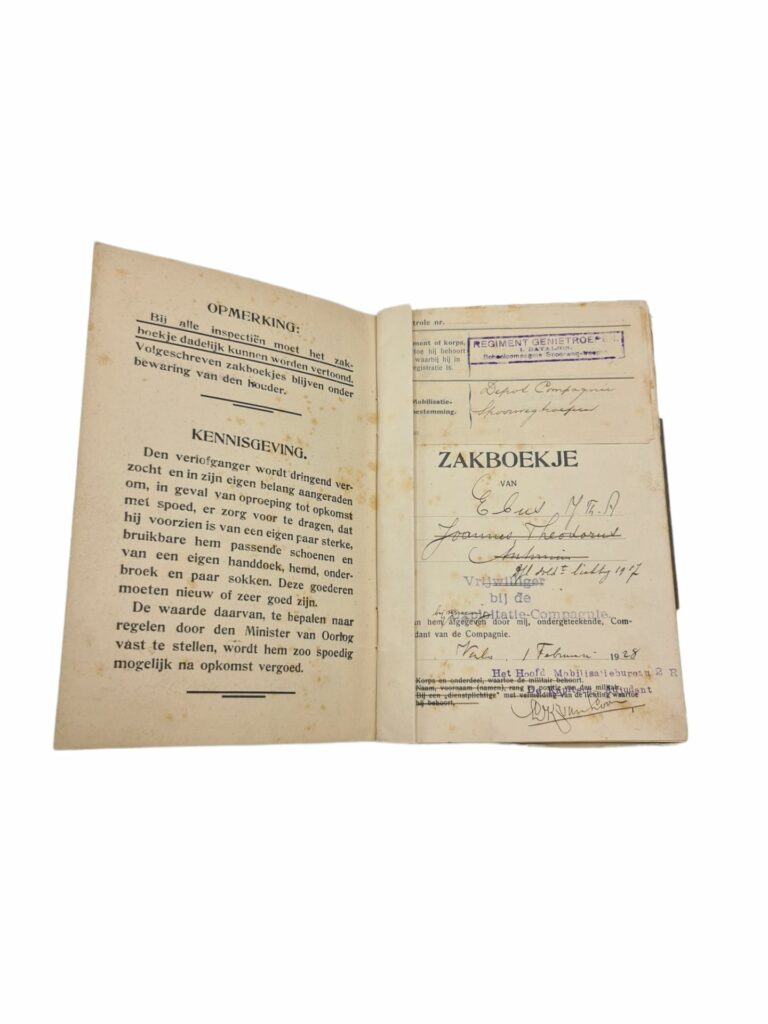 OPMERKING:
Bij alle inspectiën moet het zak-
boekje dadelijk kunnen worden vertoond.
Volgeschreven zakboekjes blijven onder
bewaring van den houder.
KENNISGEVING.
Den verlofganger wordt dringend ver-
zocht en in zijn eigen belang aangeraden
om, in geval van oproeping tot opkomst
met spoed, er zorg voor te dragen, dat
hij voorzien is van een eigen paar sterke,
bruikbare hem passende schoenen en
van een eigen handdoek, hemd, onder-
broek en paar sokken. Deze goederen
moeten nieuw of zeer goed zijn.
De waarde daarvan, te bepalen naar
regelen door den Minister van Oorlog
vast te stellen, wordt hem zoo spoedig
mogelijk na opkomst vergoed.
trole nr.
ment of korps,
toe hij behoort
waarbij hij in
registratie is.
REGIMENT GENIETROEPEN
I. BATALJON.
Mobilisatie-
bestemming.
Depot Compagnie
Spoorwegtroepen
ZAKBOEKJE
VAN
Ebus, J Th. A
Joannes Theodorus
lichting 1927
Vrijwilliger
bij de
Exploitatie-Compagnie
an hem afgegeven door mij, ondergeteekende, Com-
dant van de Compagnie.
1 Februari 1928
Het Hoofd Mobilisatiebureau 2 R
Korps en onderdeel, waartoe de militair behoort.
Naam, voornaam (namen), rang en positie van den militair.
Bij een „dienstplichtige" met vermelding van de lichting waartoe
hij behoort.
De Kapitein Adjudant